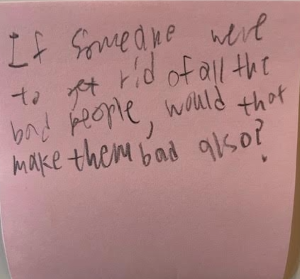 If someone were
to get rid of all the
bad people, would that
make them bad also?